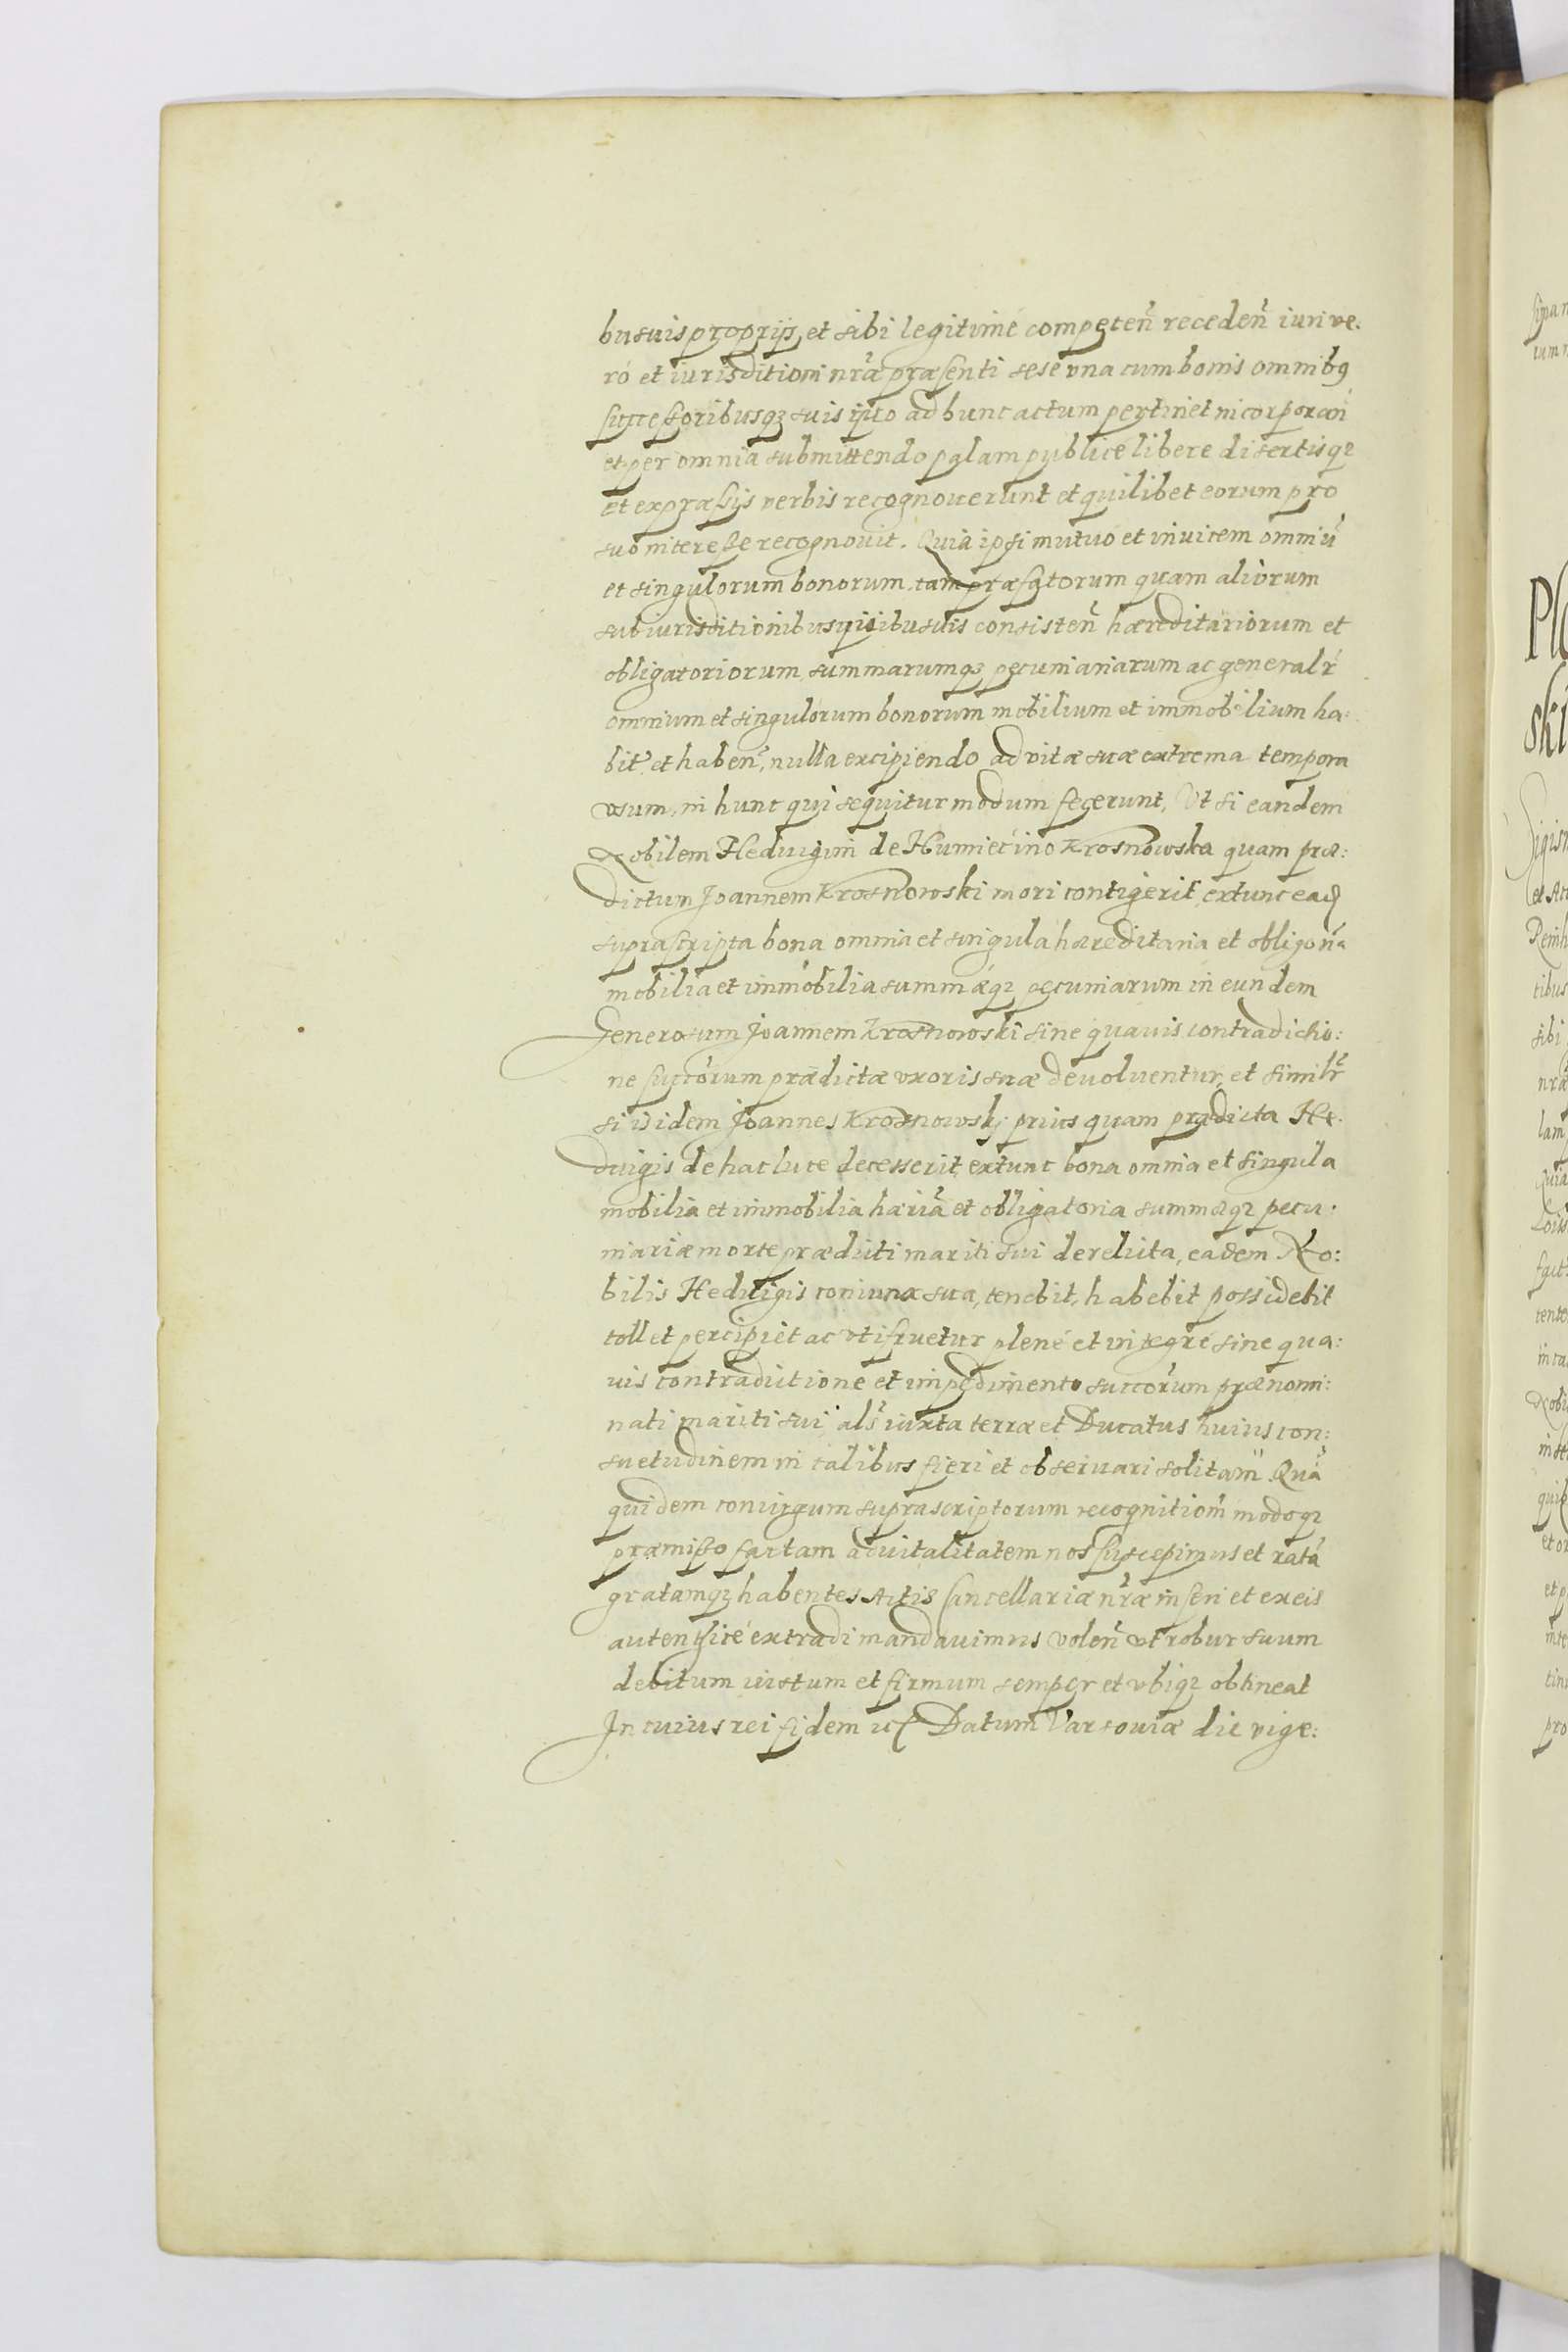 bus suis proprijs et sibi legitime competen̄ receden̄ iuri ve:
ro et iurisditioni nr̄æ præsenti sese vna cum bonis omnibꝰ
successoribusqꝫ suis quo ad hunc actum pertinet incorporan̄
et per omnia submittendo palam publicè libere disertisqꝫ
et expræssis verbis recognouerunt et quilibet eorum pro
suo interesse recognouit. Quia ipsi mutuo et inuicem omniū
et singulorum bonorum tam præfatorum quam aliorum
sub iurisditionibus quibusuis consisten̄ hæreditariorum et
obligatoriorum summarumqꝫ pecuniariarum ac generalr̄
omnium et singulorum bonorum mobilium et immobilium ha:
bit̄ et haben̄, nulla excipiendo ad vitæ suæ extrema tempora
vsum, in hunc qui sequitur modum fecerunt, Vt si eandem
Nobilem Heduigim de Humiećino Krosnowska quam præ:
dictum Joannem Krosnowski mori contigerit, extunc ead
suprascripta bona omnia et singula hæreditaria et obligōna
mobilia et immobilia summæqꝫ pecuniarum in eundem
Generosum Joannem Krosnowski sine quauis contradictio:
ne succōrum prædictæ vxoris suæ deuoluentur, et similr̄
si isidem Joannes Krosnowskj prius quam prædicta He:
duigis de hac luce decesserit, extunc bona omnia et singula
mobilia et immobilia hæriā et obligatoria summæqꝫ pecu:
niariæ morte prædicti mariti sui derelicta, eadem No:
bilis Heduigis coniunx sua, tenebit, habebit possidebit
tollet percipiet ac vtifruetur plenè et integrè sine qua:
uis contradictione et impedimento succōrum prænomi:
nati mariti sui als̄ iuxta terræ et Ducatus huius con:
suetudinem in talibus fieri et obseruari solitam Quā
quidem coniugum suprascriptorum recognitiom̄ modoqꝫ
præmisso factam aduitalitatem nos suscepimus et ratā
gratamqꝫ habentes Actis Cancellariæ nr̄æ inseri et ex eis
autenticè extradi mandauimus volen̄ vt robur suum
debitum iustum et firmum semper et vbiqꝫ obtineat
In cuius rei fidem ꝛc Datum Varsouiæ die vige: